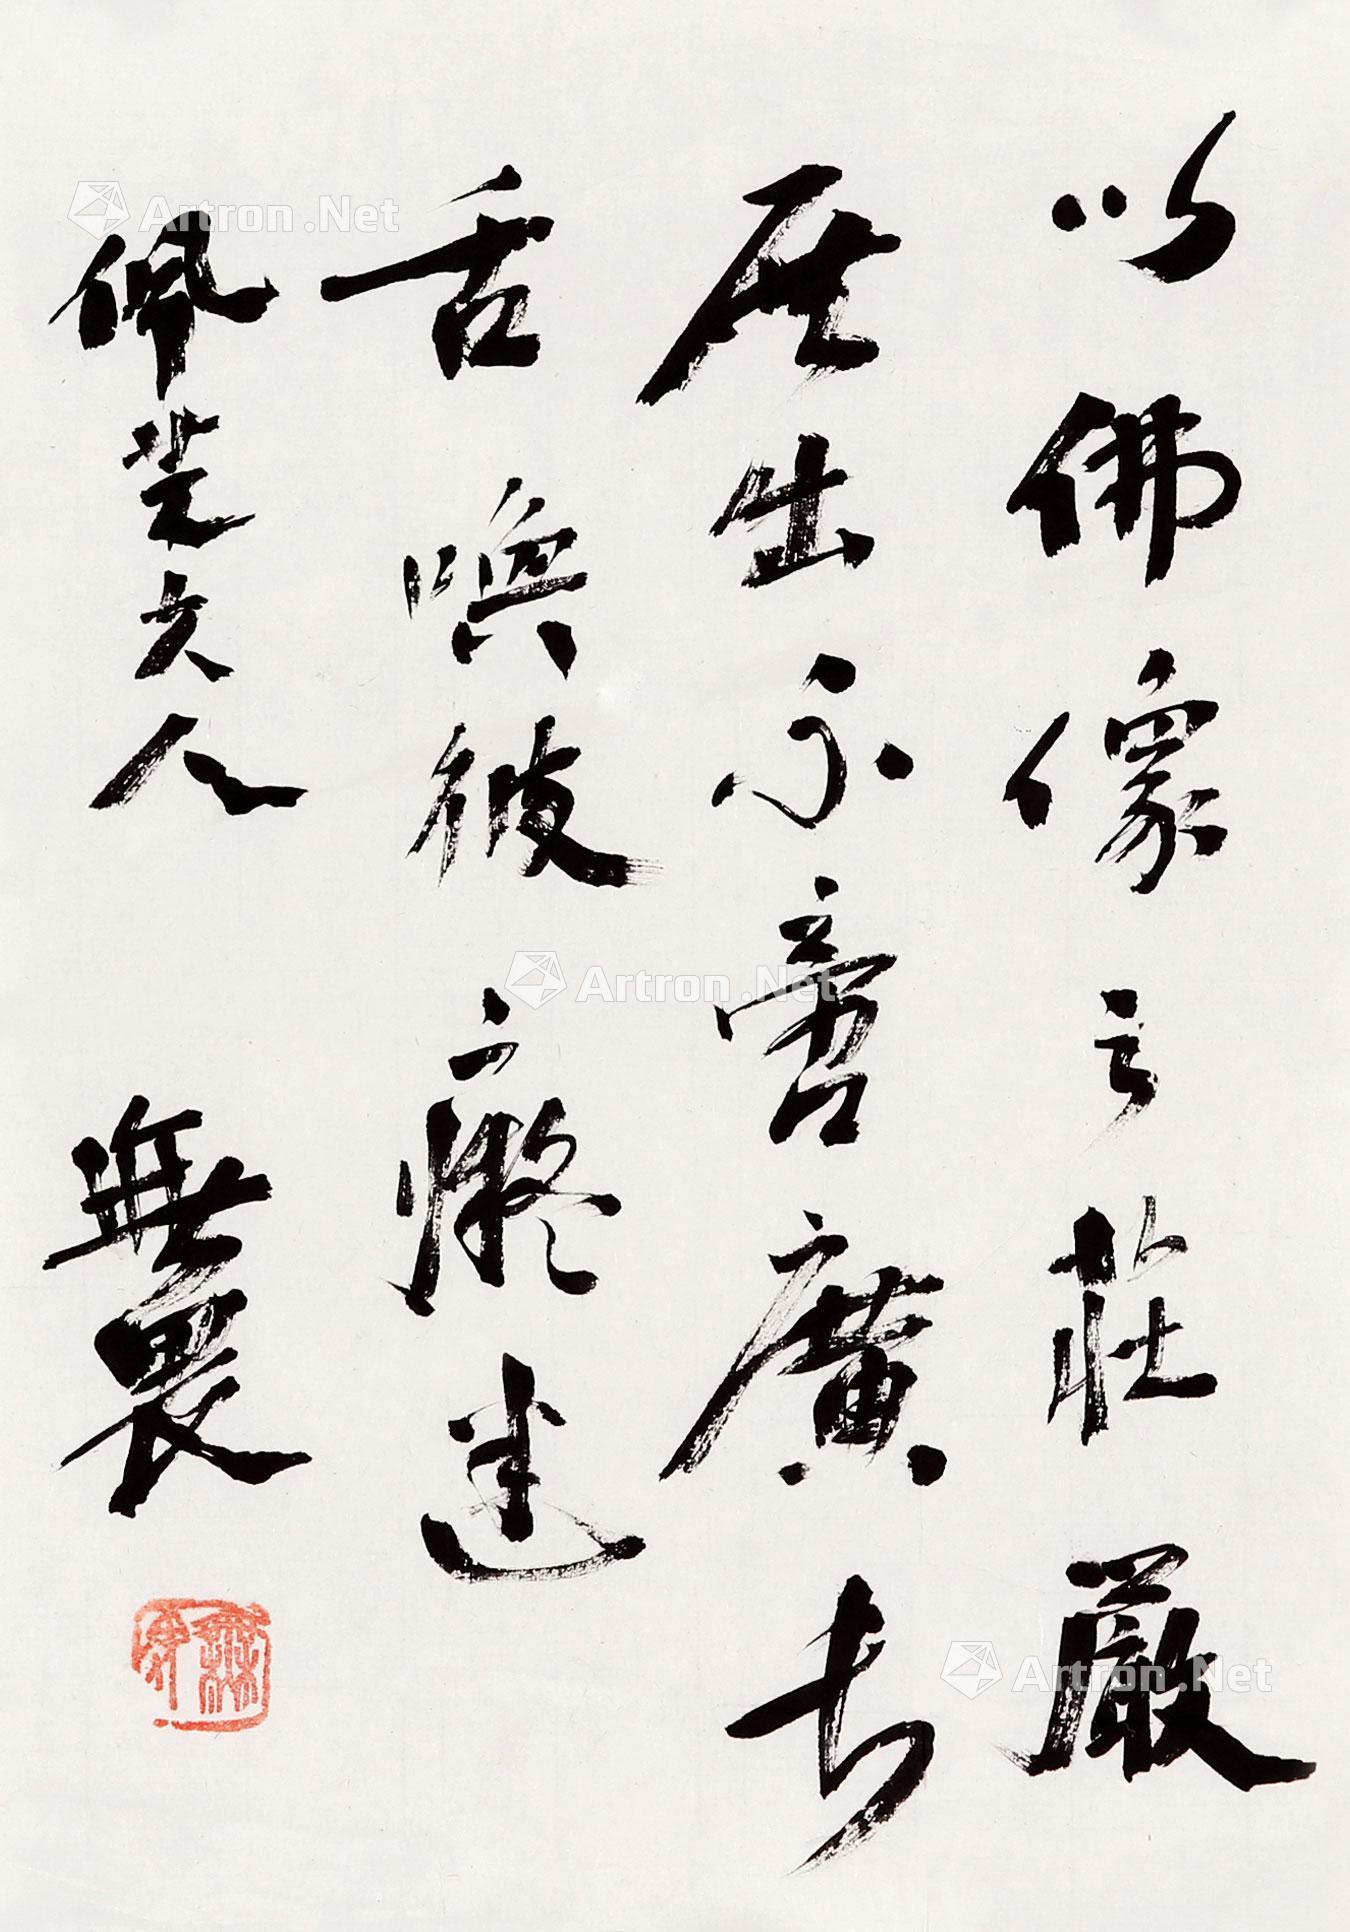 以佛像之莊嚴
展出不啻廣長
舌喚彼癡迷
佩芝大人
無畏
無畏
Artron.Net
Artron.Net
Artron.Net